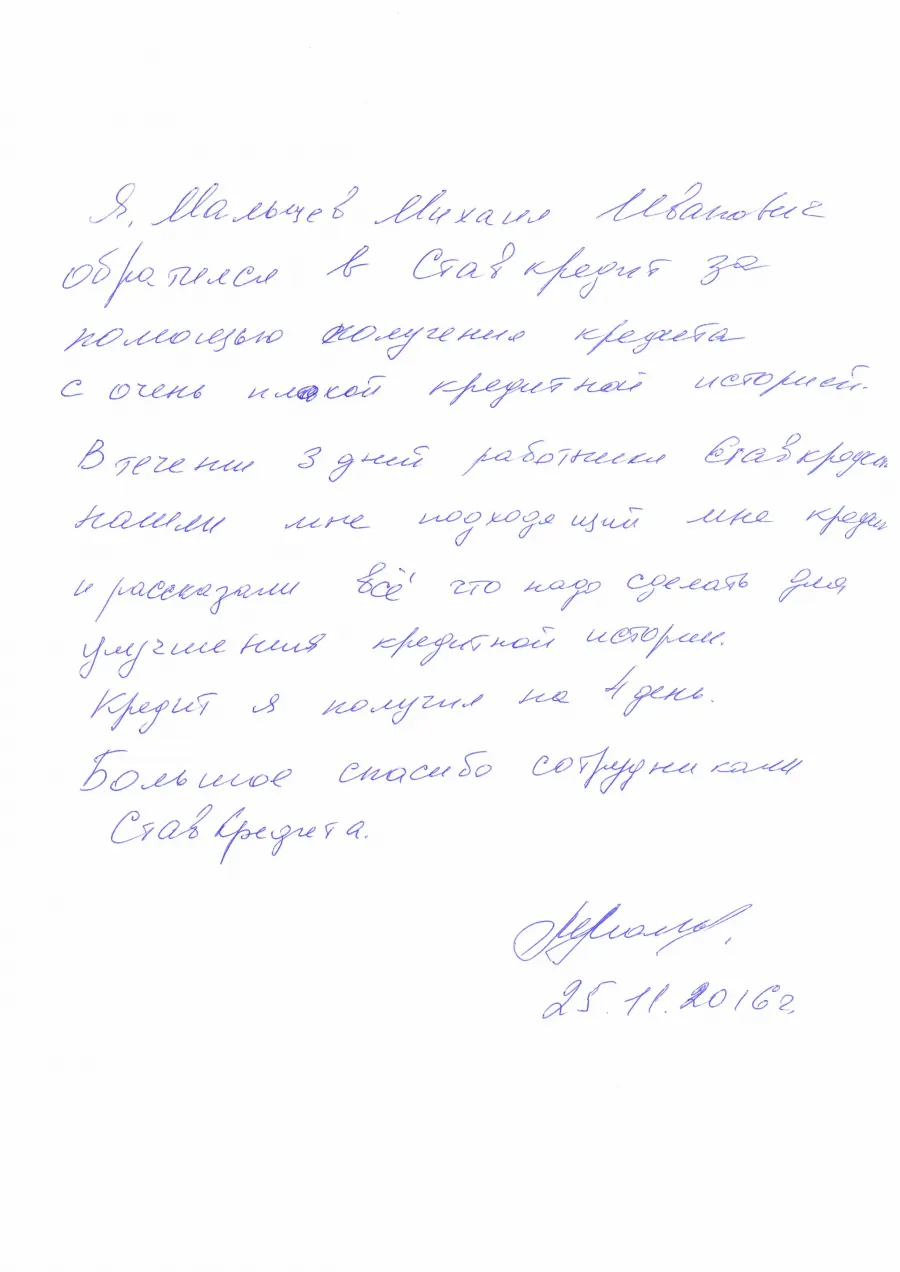 Я, Мальцев Михаил Иванович
обратился в Ставкредит за
помощью получения кредита
с очень плохой кредитной историей.
В течении 3 дней работники Ставкредит
нашли мне подходящий мне кредит
и рассказали всё что надо сделать для
улучшения кредитной истории.
Кредит я получил на 4 день.
Большое спасибо сотрудникам
СтавКредита.
25.11.2016г.